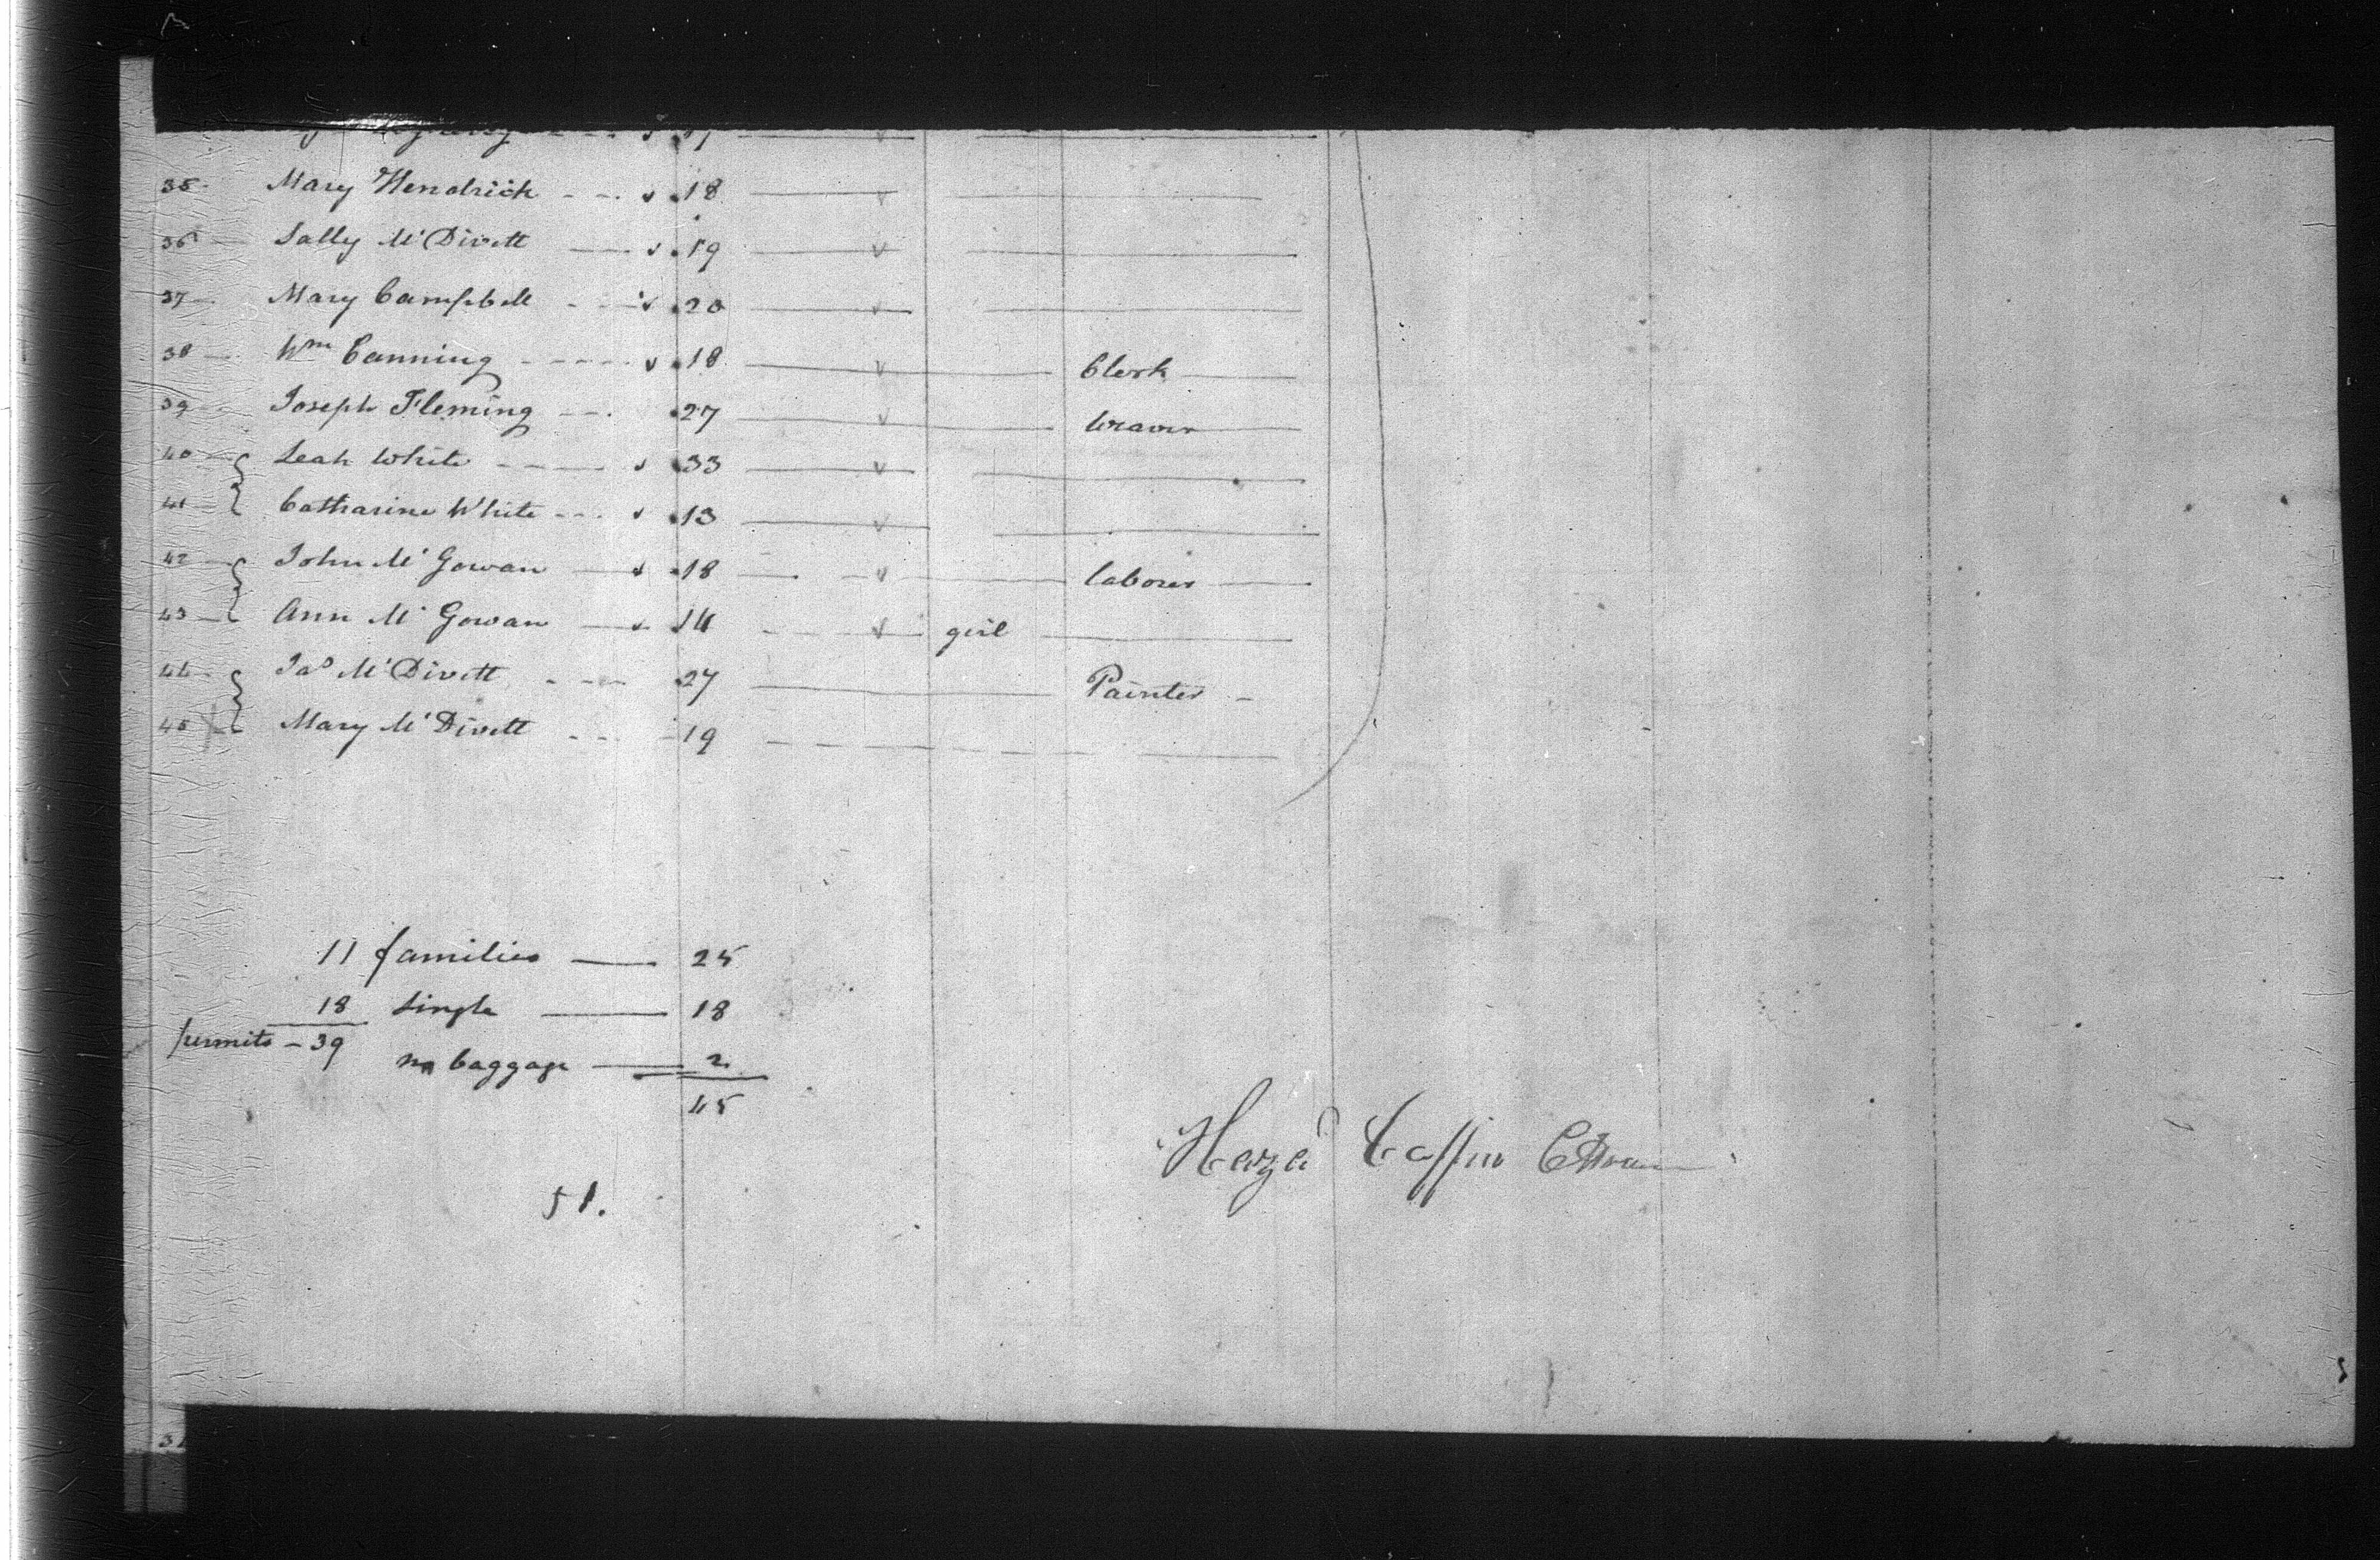 35 Mary Hendrick 18
36 Sally Mc Divett 19
37 Mary Campbell 20
38 Wm Canning 18 Clerk
39 Joseph Fleming 27 Weaver
40 Leah White 33
41 Catharine White 13
42 John Mc Gowan 18 laborer
43 Ann Mc Gowan 14 girl
44 Jas Mc Divett 27 Painter
45 Mary Mc Divett 19
11 families 25
18 Single 18
permits - 39
no baggage 2
45
51.
Coffin